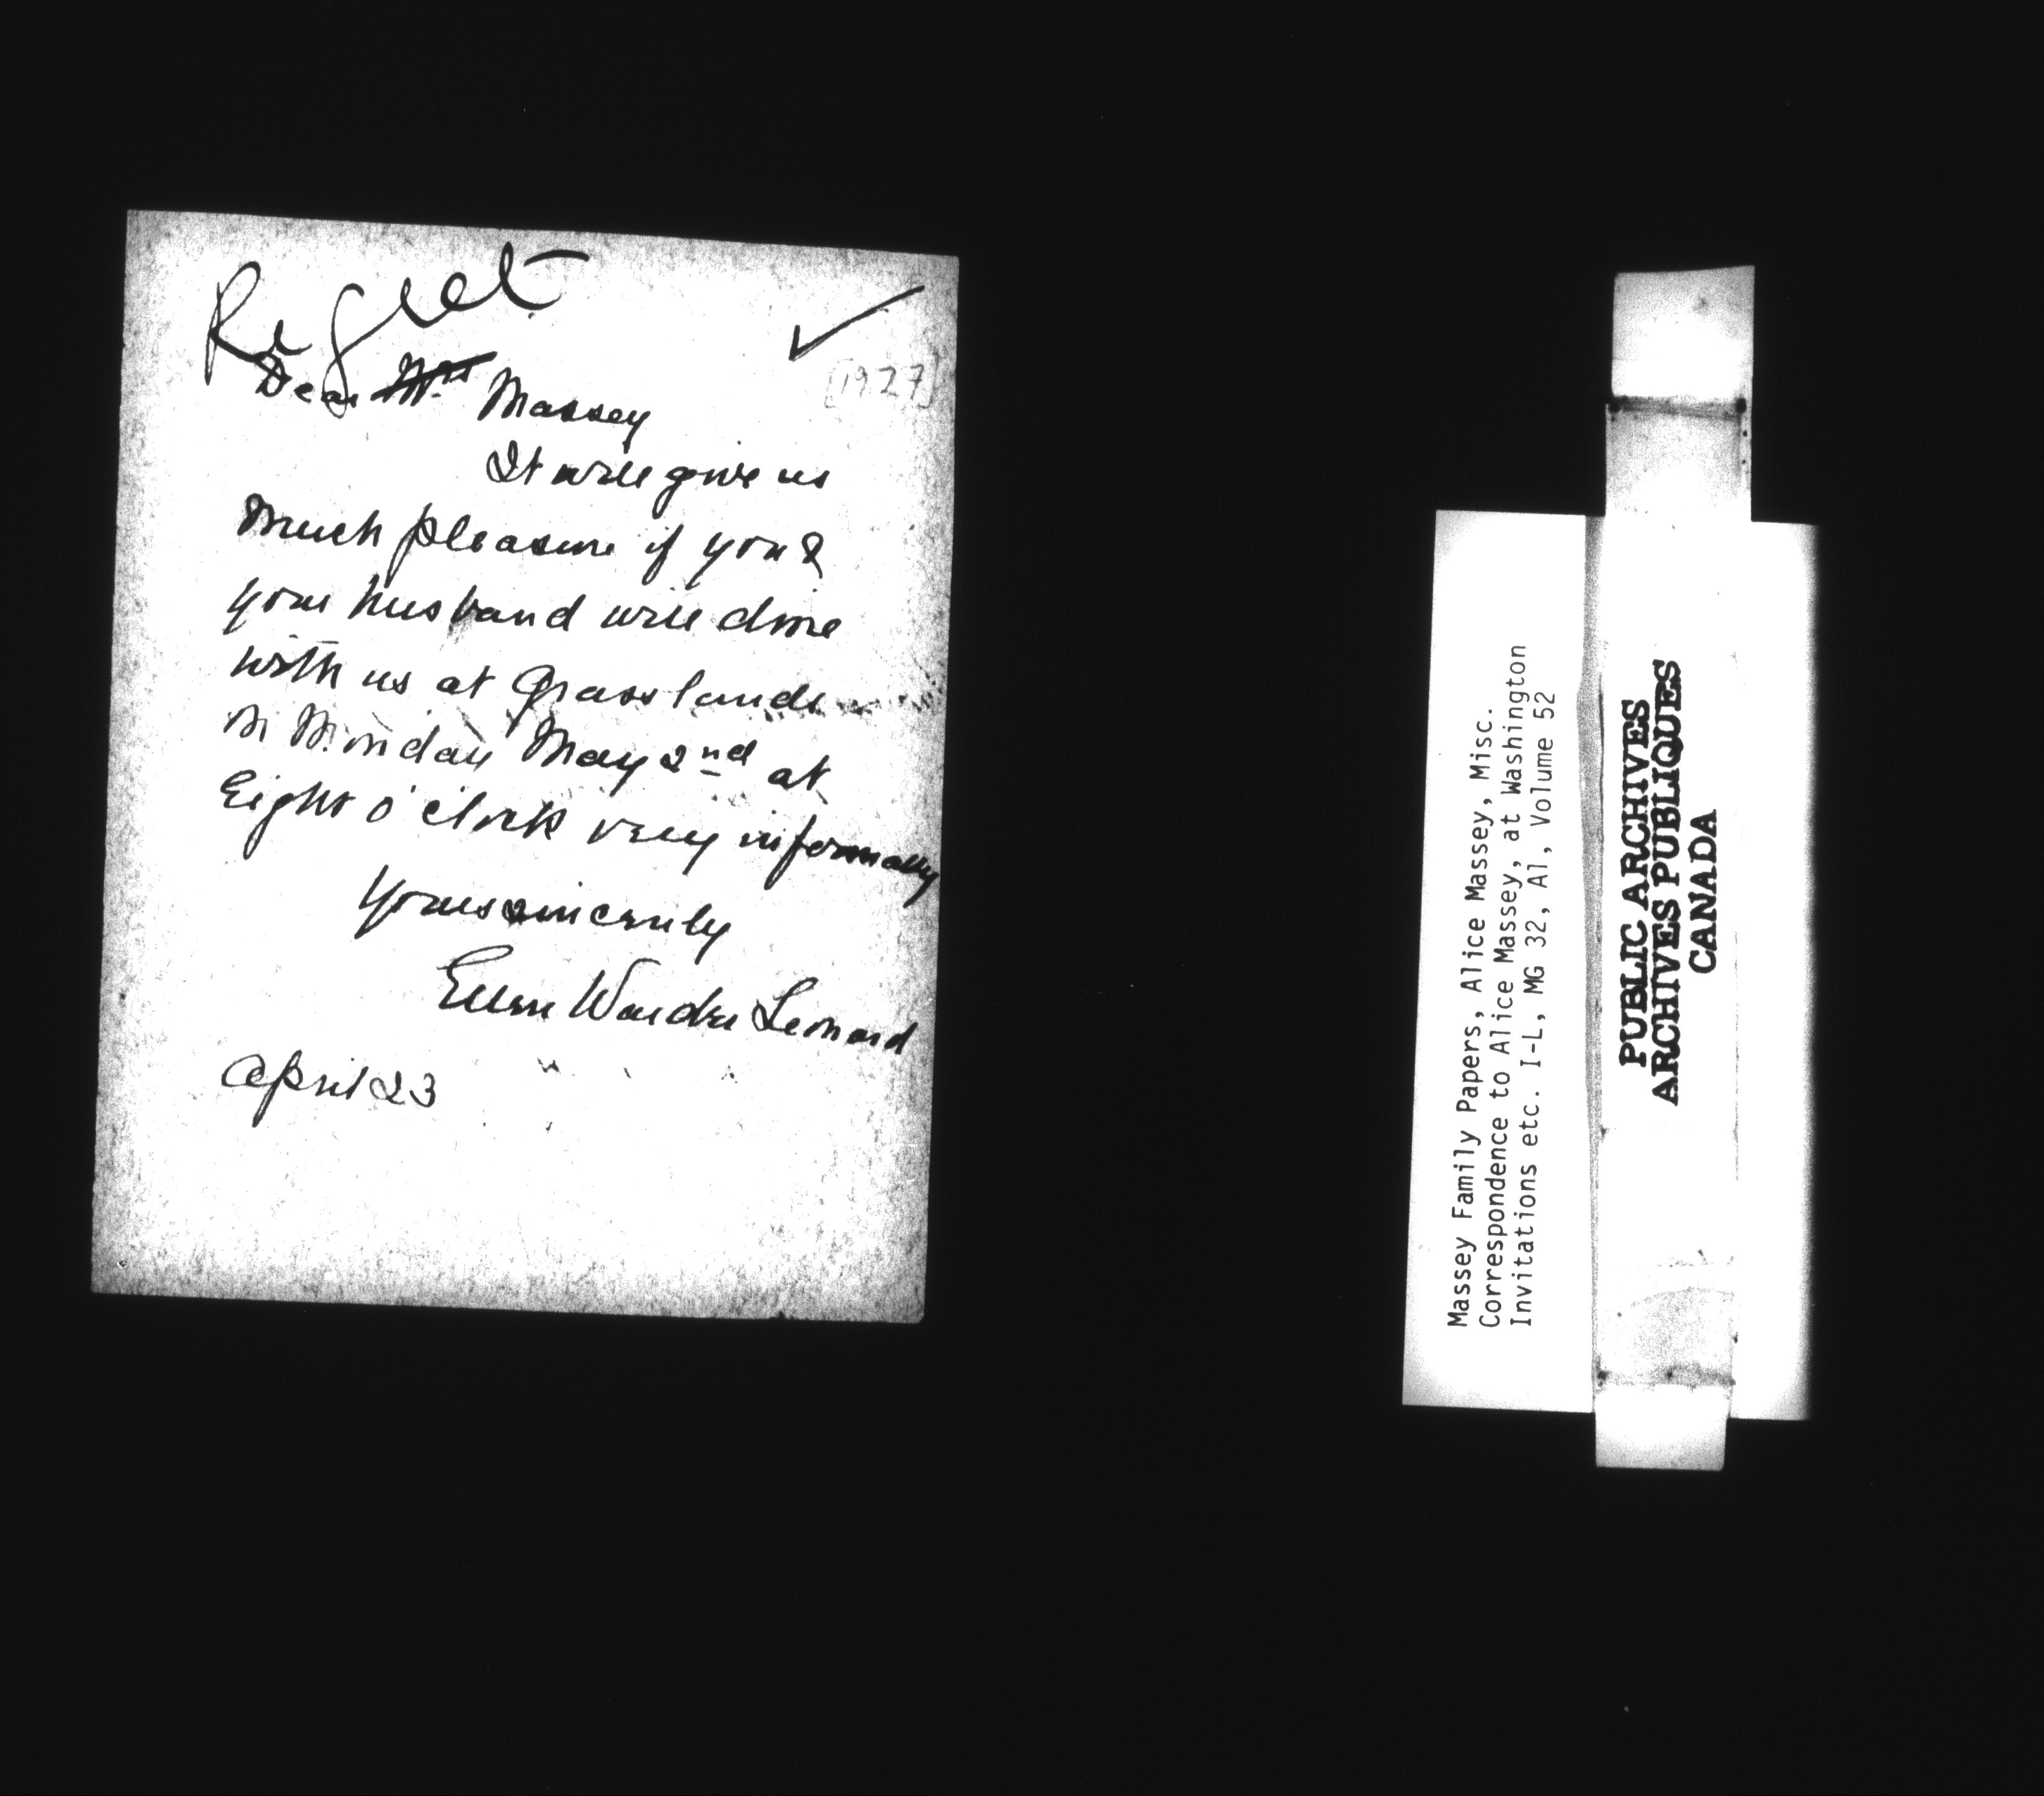 Regret
✓
[1927]
Dear Mrs Massey
It will give us
much pleasure if you &
your husband will dine
with us at Grasslands
on Monday May 2nd at
Eight o'clock very informally
Yours sincerely
Ellen Warder Leonard
April 23
Massey Family Papers, Alice Massey, Misc.
Correspondence to Alice Massey, at Washington
Invitations etc. I-L, MG 32, A1, Volume 52
PUBLIC ARCHIVES
ARCHIVES PUBLIQUES
CANADA